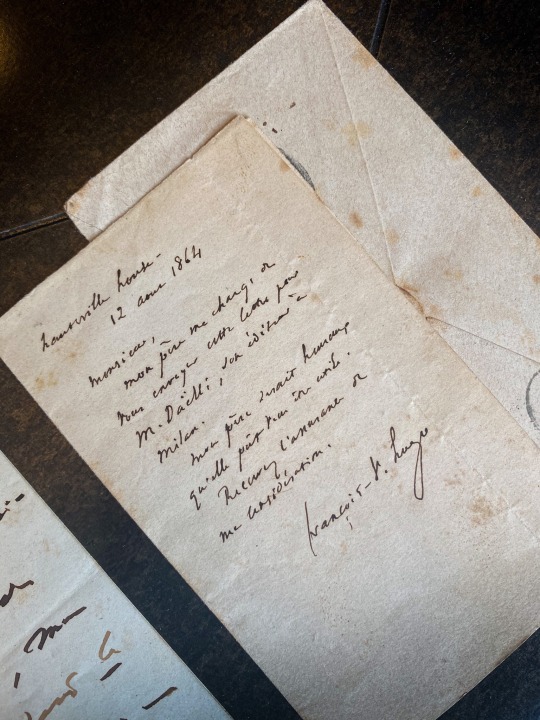 hauteville house -
12 aout 1864
Monsieur,
mon père me charge de
vous envoyer cette lettre pour
M. Daelli, son éditeur à
Milan.
mon père serait heureux
qu'elle pût vous être utile.
Recevez l'assurance de
ma considération.
françois-V. hugo